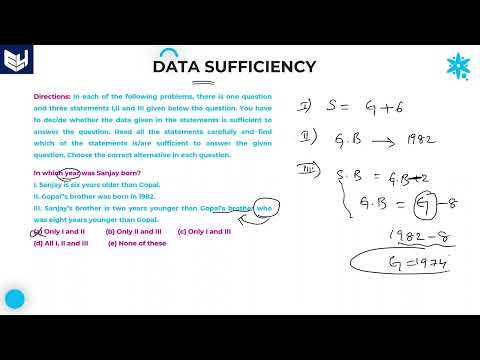 DATA SUFFICIENCY
Directions: In each of the following problems, there is one question
and three statements I,II and III given below the question. You have
to decide whether the data given in the statements is sufficient to
answer the question. Read all the statements carefully and find
which of the statements is/are sufficient to answer the given
question. Choose the correct alternative in each question.
In which year was Sanjay born?
I. Sanjay is six years older than Gopal.
II. Gopal's brother was born in 1982.
III. Sanjay's brother is two years younger than Gopal's brother who
was eight years younger than Gopal.
(a) Only I and II (b) Only II and III (c) Only I and III
(d) All I, II and III (e) None of these
I) S = G+6
II) G.B → 1982
III) S.B = G.B-2
G.B = G-8
1982-8
G=1974